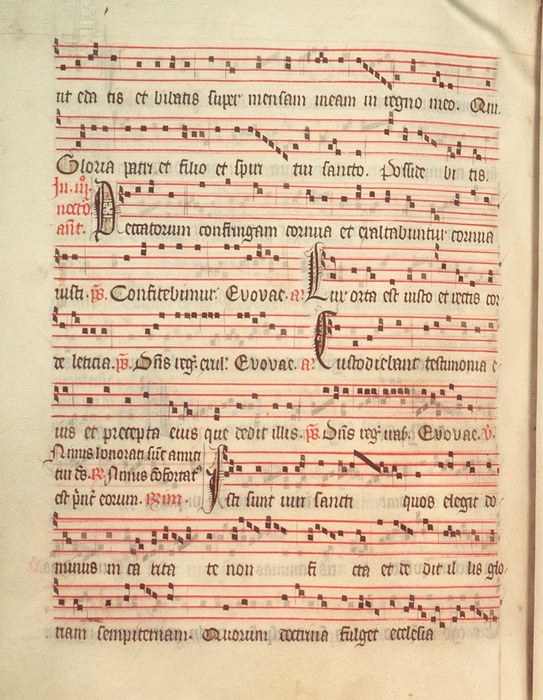 ut eda tis et bibatis super mensam meam in regno meo. Qui
Gloria patri et filio et spiri tui sancto. Posside bi tis.
In. iij.
nocto
ant. Peccatorum confringam cornua et exaltabuntur cornua
iusti. ps. Confitebimur. Evovae. a. Lux orta est iusto et rectis cor
de leticia. ps. Dns reg. exul. Evovae. a. Custodiebant testimonia e
ius et precepta eius que dedit illis. ps. Dns reg. Evovae. v.
Nimis honorati sut amici
tui ds. R. Nimis cofortat
est eorum. Isti sunt viri sancti quos elegit do
minus in ca rita te non fi cta et de dit il lis glo
riam sempiternam. Quorum doctrina fulget ecclesia